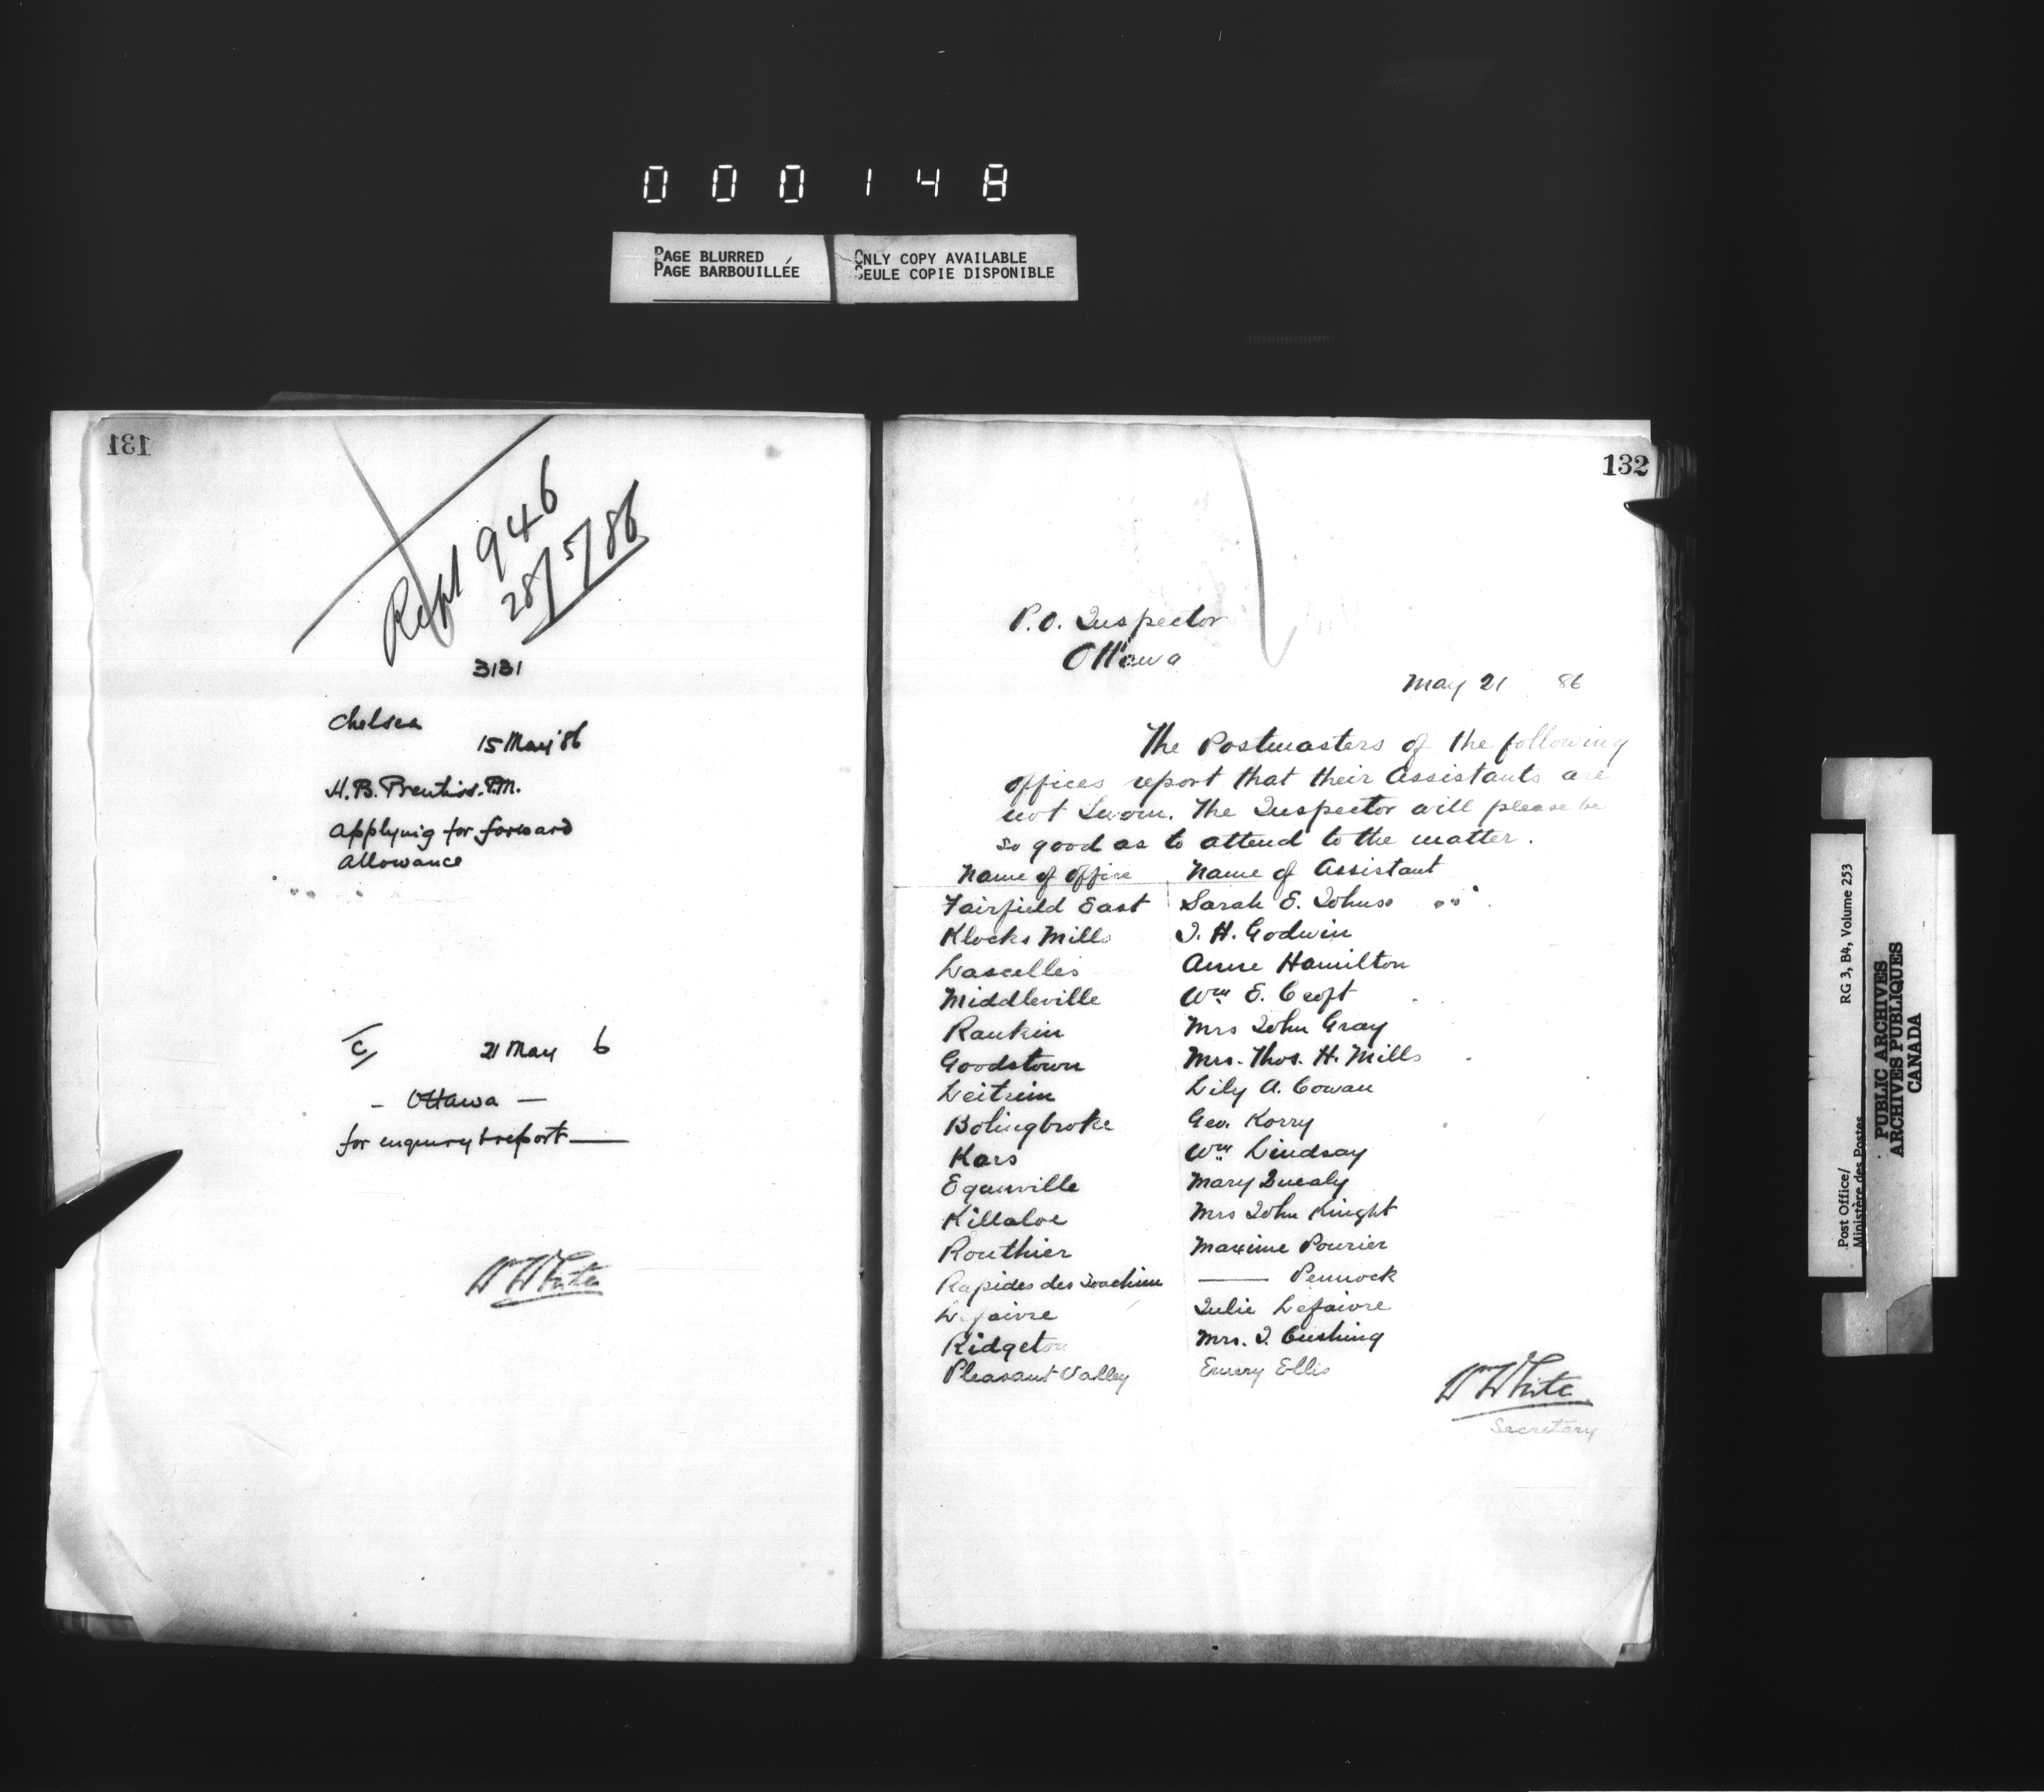 000148
PAGE BLURRED
PAGE BARBOUILLÉE
ONLY COPY AVAILABLE
SEULE COPIE DISPONIBLE
131
Rept 946
28/5/86
3131
Chelsea
15 May '86
H. B. Prentiss. P.M.
Applying for forward
allowance
C/ 21 May 6
- Ottawa -
for enquiry & report
W White
132
P. O. Inspector
Ottawa
May 21 86
The Postmasters of the following
offices report that their Assistants are
not Sworn. The Inspector will please be
so good as to attend to the matter.
Name of Office Name of Assistant
Fairfield East Sarah E. Johns
Klocks Mills J. H. Godwin
Lascelles Anne Hamilton
Middleville Wm E. Croft
Rankin Mrs John Gray
Goodstown Mrs. Thos. H. Mills
Leitrim Lily A. Cowan
Bolingbroke Geo. Korry
Kars Wm Lindsay
Eganville Mary
Killaloe Mrs John Knight
Routhier Maxime Pourier
Rapides des Joachim —— Pennock
Lefaivre Julie Lefaivre
Ridgeton Mrs. J. Cushing
Pleasant Valley Emery Ellis
W White
Secretary
Post Office/
Ministère des Postes
RG 3, B4, Volume 253
PUBLIC ARCHIVES
ARCHIVES PUBLIQUES
CANADA